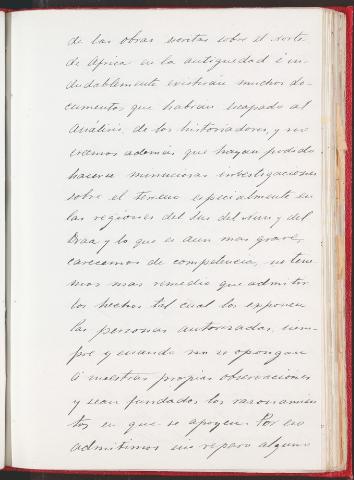 de las obras escritas sobre el Norte
de Africa en la antigüedad é in-
dudablemente existirán muchos do-
cumentos que habrán escapado al
análisis de los historiadores, y no
creemos además que hayan podido
hacerse minuciosas investigaciones
sobre el terreno especialmente en
las regiones del Sus del Nun y del
Draa y lo que es aun mas grave,
carecemos de competencia, no tene-
mos mas remedio que admitir
los hechos tal cual los exponen
las personas autorizadas, siem-
pre y cuando no se opongan
á nuestras propias observaciones
y sean fundados los razonamien
tos en que se apoyen. Por eso
admitimos sin reparo alguno